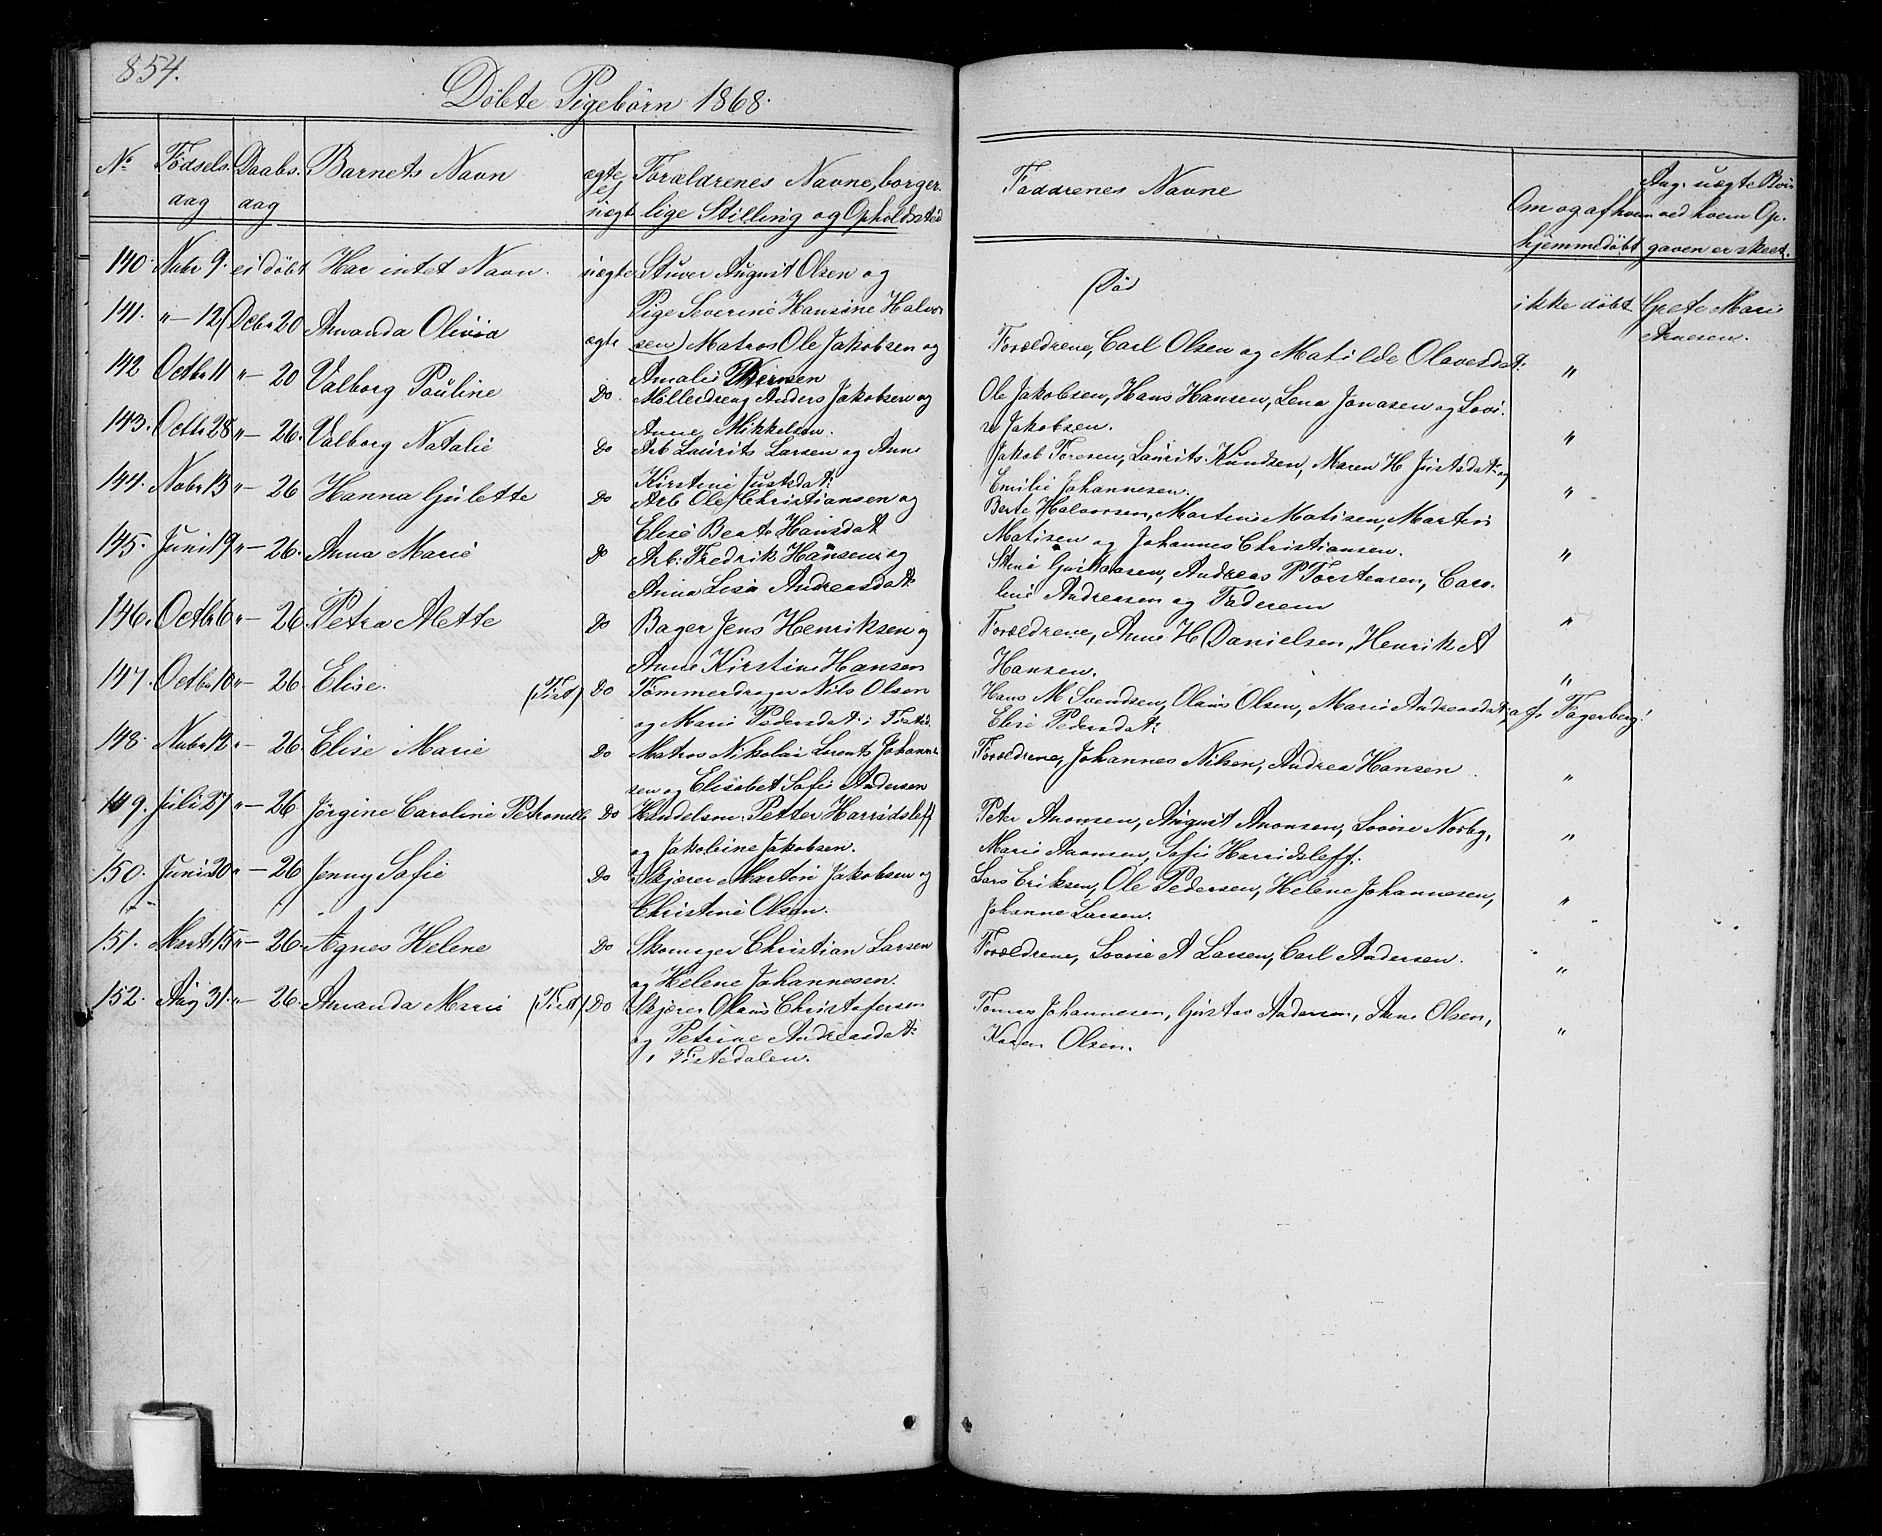 854.
Döbte Pigebörn 1868.
No Födsels Daabs Barnets Navn ægte Forældrenes Navne, borger
dag dag ej uægt lige Stilling og Opholdsted
Faddrenes Navne
Om og af hvem hjemmedöbt
Ang. uægte Börn ved hvem Opgaven er skeet.
140. Nobr 9. ei döbt Har intet Navn. uægte Stuver August Olsen og
Pige Severine Hansine Halvorsen)
Död
ikke döbt Grete Marie
Arnesen.
141. " 12 Decbr 20 Amanda Olivia ægte Matros Ole Jakobsen og
Amalie Bernsen
Forældrene, Carl Olsen og Matilde Olavesdat: "
142 Octbr 11 " — 20 Valborg Pauline Do. Möllerdreng Anders Jakobsen og
Anne Mikkelsen.
Ole Jakobsen, Hans Hansen, Lena Jonasen og Lovi-
se Jakobsen. "
143. Octbr 28 " — 26. Valborg Natalie Do Arb Laurits Larsen og Ann
Kirstine Justsdat:
Jakob Toresen, Laurits Knudsen, Maren H Justsdat: og
Emilie Johannesen. "
144. Nobr 13 " — 26 Hanna Gulette Do Arb Ole Christiansen og
Elise Beate Hansdat
Berte Halvorsen, Martine Matisen, Martin
Matisen og Johannes Christiansen. "
145. Juni 19 " — 26. Anna Marie Do Arb: Fredrik Hansen og
Anna Lisa Andreasdat:
Stine Gustavsen, Andreas P Torstensen, Caro-
line Andreasen og Faderen "
146. Octbr 6 " — 26 Petra Alette Do Bager Jens Henriksen og
Anne Kirstine Hansen
Forældrene, Anne H Danielsen, Henrik A
Hansen. "
147. Octbr 10 " — 26. Elise. (Tist) Do Tömmerdrager Nils Olsen
og Marie Pedersdat: i Tisted.
Hans M Svendsen, Olaus Olsen, Marie Andreasdat: af J. Fagerberg!
Elise Pedersdat:
148. Nobr 12 " — 26 Elise Marie Do Matros Nikolai Lorents Johann-
sen og Elisabet Sofie Andersen
Forældrene, Johannes Nilsen, Andrea Hansen "
149. Juli 27 " — 26 Jörgine Caroline Petronelle Do Handelsm: Petter Harridsleff
og Jakobine Jakobsen.
Peter Anonsen, August Anonsen, Lovise Norby,
Marie Anonsen, Sofie Harridsleff. "
150. Juni 20 " — 26 Jenny Sofie Do Skjærer Martin Jakobsen og
Christine Olsen.
Lars Eriksen, Ole Pedersen, Helene Johannesen,
Johanne Larsen. "
151. Mart 15 " — 26 Agnes Helene Do Skomager Christian Larsen
og Helene Johannesen.
Forældrene, Lovise A Larsen, Carl Andersen. "
152. Aug 31. " — 26. Amanda Marie (Tist) Do Skjærer Olaus Christofersen
og Petrine Andreasdat:
i Tistedalen.
Tomas Johannesen, Gustav Andersen, Anne Olsen,
Karen Olsen. "